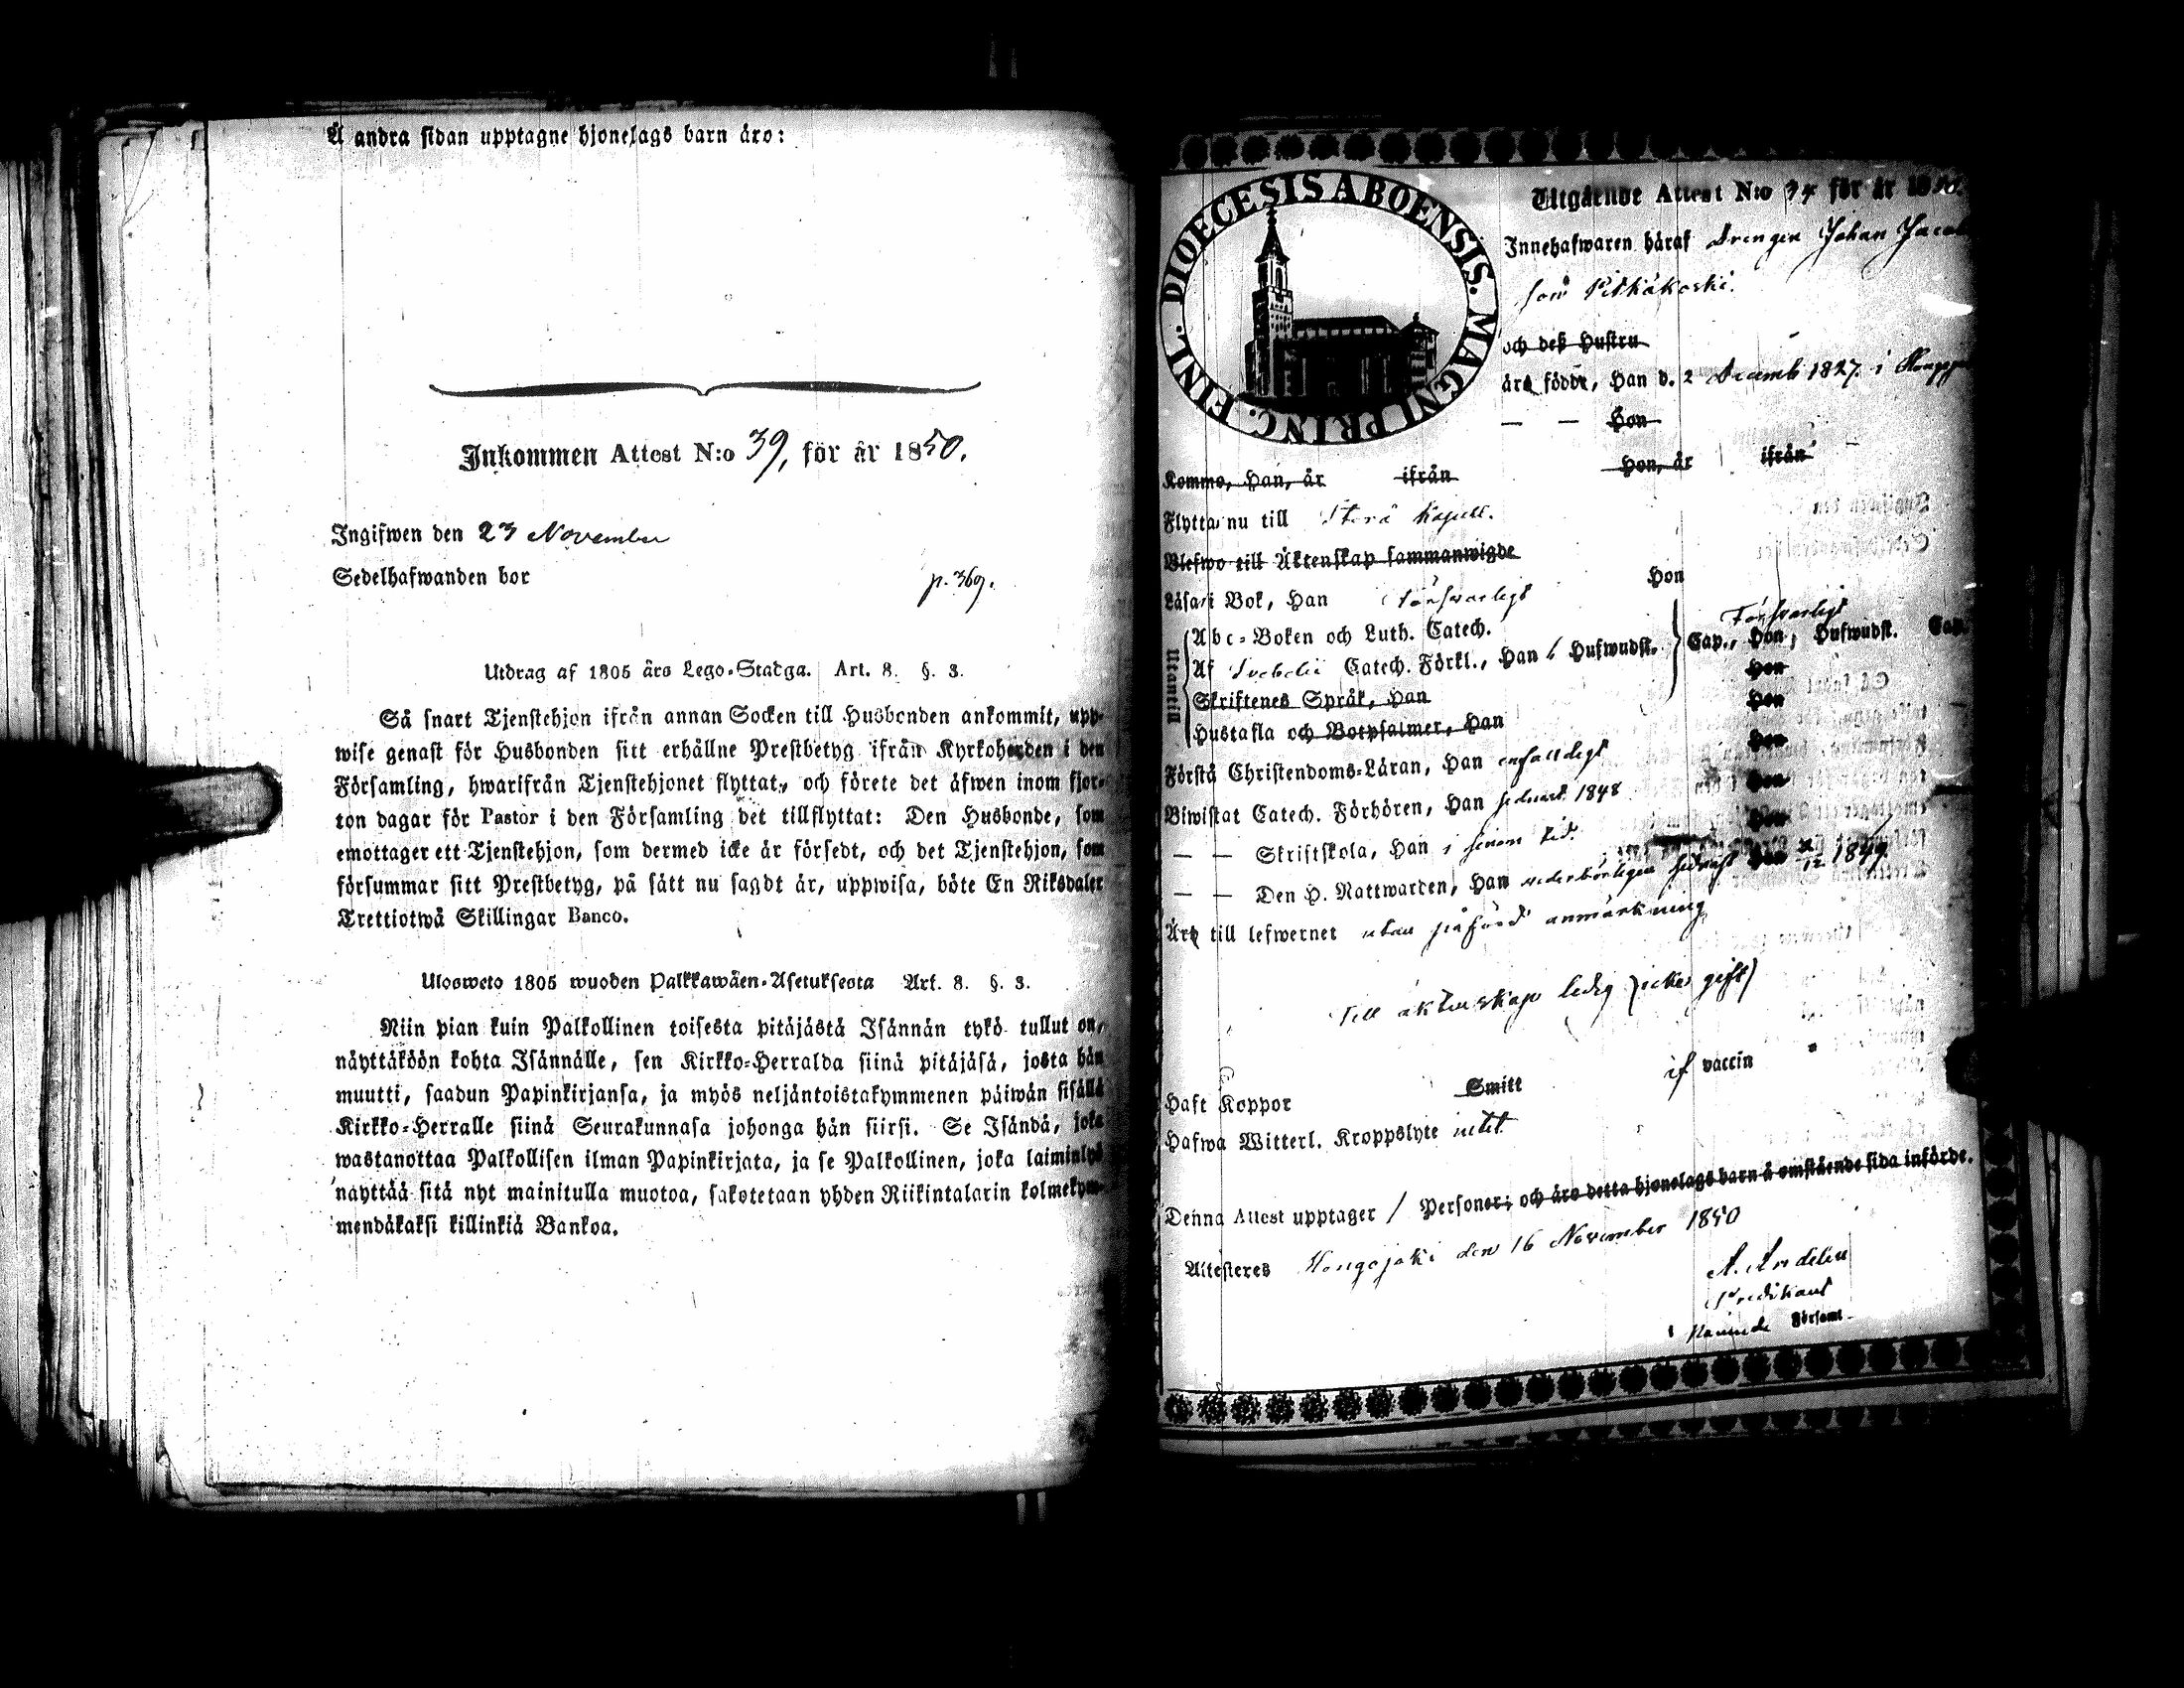 Å andra sidan upptagne hjonelags barn äro:
Inkommen Attest N:o 39, för år 1850.
Ingifwen den 23 November
Sedelhafwanden bor p. 369.
Utdrag af 1805 års Lego-Stadga. Art. 8. §. 3.
Så snart Tjenstehjon ifrån annan Socken till Husbonden ankommit, upp-
wise genast för Husbonden sitt erhållne Prestbetyg ifrån Kyrkoherden i den
Församling, hwarifrån Tjenstehjonet flyttat, och förete det äfwen inom fjor-
ton dagar för Pastor i den Församling det tillflyttat: Den Husbonde, som
emottager ett Tjenstehjon, som dermed icke är försedt, och det Tjenstehjon, som
försummar sitt Prestbetyg, på sätt nu sagdt är, uppwisa, böte En Riksdaler
Trettiotwå Skillingar Banco.
Ulosweto 1805 wuoden Palkkawäen-Asetuksesta Art. 8. §. 3.
Niin pian kuin Palkollinen toisesta pitäjästä Isännän tykö tullut on,
näyttäköön kohta Isännälle, sen Kirkko-Herralda siinä pitäjäsä, josta hän
muutti, saadun Papinkirjansa, ja myös neljäntoistakymmenen päiwän sisällä
Kirkko-Herralle siinä Seurakunnasa johonga hän siirsi. Se Isändä, joka
wastanottaa Palkollisen ilman Papinkirjata, ja se Palkollinen, joka laiminlyö
näyttää sitä nyt mainitulla muotoa, sakotetaan yhden Riikintalarin kolmekym-
mendäkaksi killinkiä Bankoa.
DIOECESIS ABOENSIS. MAGNI PRINC. FINL.
Utgående Attest N:o för år 1850.
Innehafwaren häraf Drengen Johan Jacob
son Pitkäkoski.
och deß Hustru
äro födde, Han d. 2 Decemb 1827 i
— — Hon
Komme, Han, år ifrån Hon, år ifrån
Flytta nu till Storå Kapell.
Blefwo till Äktenskap sammanwigde
Läsa i Bok, Han försvarligt Hon
Utantill
Abc-Boken och Luth. Catech. Försvarligt
Af Svebelii Catech. Förkl., Han 6 Hufwudst. Cap., Hon, Hufwudst. Cap.
Skriftenes Språk, Han Hon
Hustafla och Botpsalmer, Han Hon
Förstå Christendoms-Läran, Han enfaldigt Hon
Biwistat Catech. Förhören, Han sednast 1848 Hon
— — Skriftskola, Han i sinom tid. Hon
— — Den H. Nattwarden, Han vederbörligen sednast Hon 1849
Äro till lefwernet utan påförd anmärkning
Till äktenskap ledig (icke gift)
Haft Koppor Smitt af vaccin
Hafwa Witterl. Kroppslyte intet
Denna Attest upptager 1 Personer; och äro detta hjonelags barn å omstående sida införde.
Attesteres Hongojoki den 16 November 1850
Predikant
i Församl.